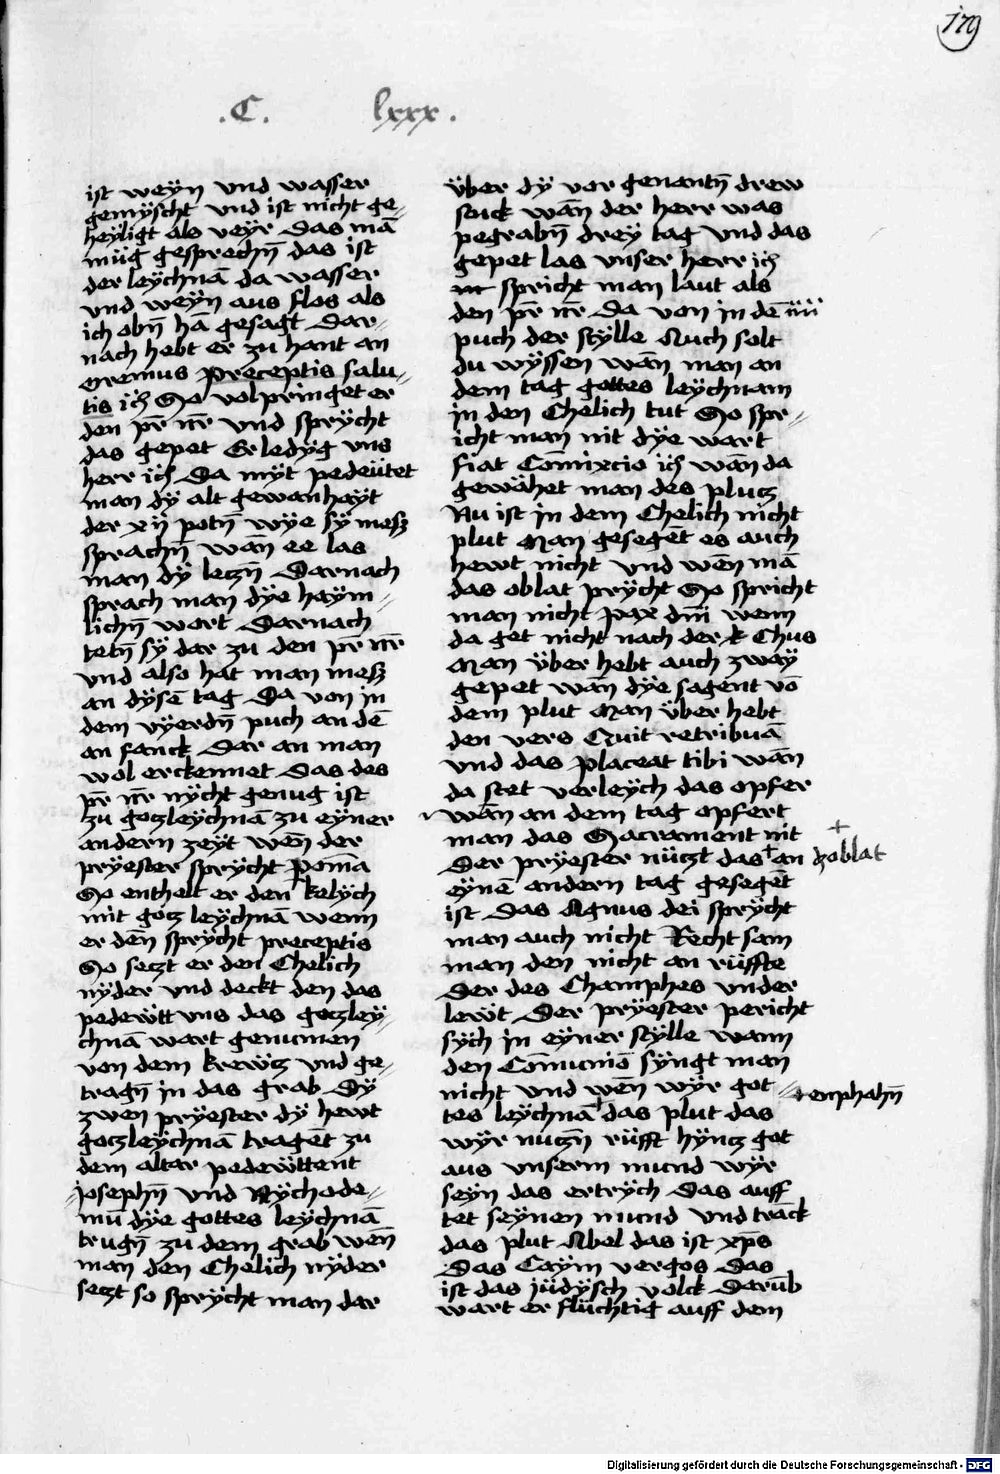 179
.C. lxxx.
ist weÿn vnd wasser
gemÿscht vnd ist nicht ge-
heÿligt als veÿr Das mā
müg gesprechn̄ das ist
der leÿchnā da wasser
vnd weÿn aus flos als
ich obn̄ hā gesagt Dar-
nach hebt er zu hant an
Oremus Preceptis salu-
tis ich So volpringet er
den pr̄ nr̄ vnd sprÿcht
das gepet Erledÿg vns
herr ich Da mÿt pedeütet
man dÿ alt gewanhaÿt
der xij potn̄ wÿe sÿ mesz
sprachn̄ wān ee las
man dÿ leczn̄ Darnach
sprach man dÿe haÿm-
lichn̄ wort Darnach
tetn̄ sÿ dar zu den pr̄ nr̄
vnd also hat man mesz
an dÿsē tag Da von in
dem vÿerdn̄ puch an dē
an fanck Dar an man
wol erckennet Das des
pr̄ nr̄ nÿcht genug ist
zu goczleÿchnā zu eÿner
andern zeÿt wēn der
prÿester sprÿcht Poma
So enthelt er den kelÿch
mit gocz leÿchnā wenn
er dēn sprÿcht preceptis
So seczt er den Chelich
nÿder vnd deckt den das
pedewtt vns das goczleÿ-
chnā wart genumen
von dem krewcz vnd ge-
tragn̄ in das grab Dÿ
zwen prÿester dÿ hewt
goczleÿchnā tragēt zu
dem altar pedewttent
Josephn̄ vnd Nÿchode-
mū dÿe gottes leÿchnā
trugn̄ zu dem grab wēn
man den Chelich nÿder
seczt so sprÿcht man dar
über dÿ vor genantn̄ drew
stuck wān der herr was
pegrabn̄ dreÿ tag vnd das
gepet las vnser herr ich
spricht man laut als
den pr̄ nr̄ Da von in dē iiii
puch der stÿlle Auch solt
du wÿssen wān man an
dem tag gottes leÿchnam
in den Chelich tut So spr-
icht man nit dÿe wart
fiat Cōmixcio ich wān da
gewähet man des plucz
Nu ist in dem Chelich nicht
plut Man gesegēt es auch
hewt nicht vnd wēn mā
das oblat prÿcht So spricht
man nicht Pax dm̄i wenn
da get nicht nach der k Chus
Man über hebt auch zwaÿ
gepet wān dÿe sagent vō
dem plut Man über hebt
den vers Quit retribuā
vnd das placeat tibi wān
da stet verleÿch das opfer
wān an dem tag opfert
man das Sacrament nit
Der prÿester nüczt das + an + d'oblat
eÿnē andern tag gesegēt
ist Das Agnus dei sprÿcht
man auch nicht Recht sam
man den nicht an rüffte
Der des Champhes vnder
lewt Der prÿester pericht
sÿch in eÿner stÿlle wann
den Cōmunio sÿngt man
nicht vnd wēn wÿr got-
tes leÿchnā das plut das enphahn̄
wÿr nuczn̄ rüfft hÿncz got
aus vnserm mund wÿr
seÿn das ertrÿch Das auff
tet seÿnen mund vnd trāck
das plut Abel das ist xp̄s
Das Caÿm vergos Das
ist das jüdÿsch volck Darūb
wart er flüchtig auff dem
Digitalisierung gefördert durch die Deutsche Forschungsgemeinschaft - DFG